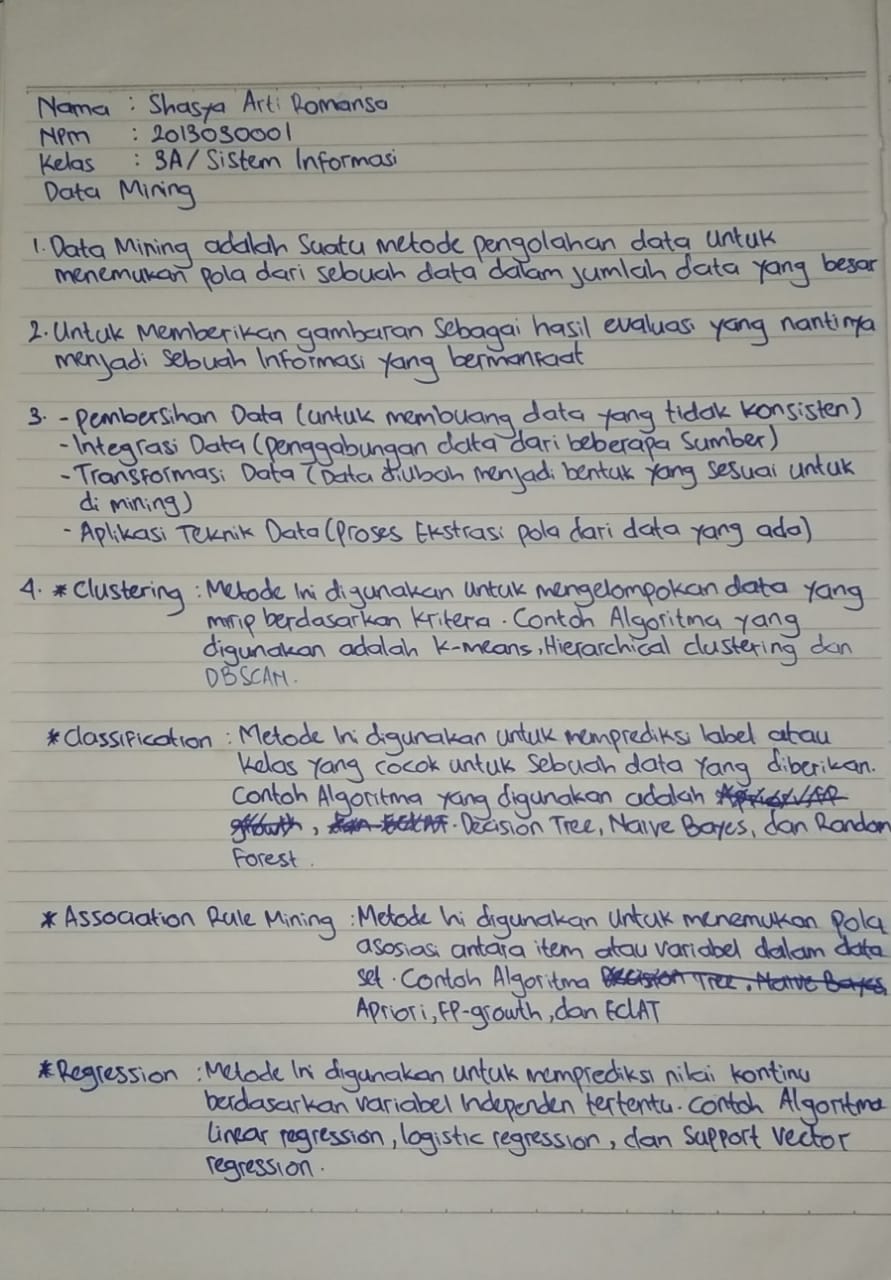 Nama : Shasya Arti Romansa
NPM : 2013030001
Kelas : 3A/Sistem Informasi
Data Mining
1. Data Mining adalah Suatu metode pengolahan data untuk
menemukan pola dari sebuah data dalam jumlah data yang besar
2. Untuk Memberikan gambaran Sebagai hasil evaluasi yang nantinya
menjadi Sebuah Informasi yang bermanfaat
3. - Pembersihan Data (untuk membuang data yang tidak konsisten)
- Integrasi Data (Penggabungan data dari beberapa Sumber)
- Transformasi Data (Data diubah menjadi bentuk yang sesuai untuk
di mining)
- Aplikasi Teknik Data (Proses Ekstrasi pola dari data yang ada)
4. * Clustering : Metode Ini digunakan Untuk mengelompokan data yang
mirip berdasarkan Kritera. Contoh Algoritma yang
digunakan adalah K-means, Hierarchical clustering dan
DBSCAN.
* Classification : Metode Ini digunakan untuk memprediksi label atau
kelas yang cocok untuk Sebuah data yang diberikan.
Contoh Algoritma yang digunakan adalah
growth, dan ECLAT. Decision Tree, Naive Bayes, dan Random
Forest.
* Association Rule Mining : Metode Ini digunakan Untuk menemukan Pola
asosiasi antara item atau variabel dalam data
set. Contoh Algoritma Decision Tree, Naive Bayes
Apriori, FP-growth, dan EClAT
* Regression : Metode Ini digunakan untuk memprediksi nilai kontinu
berdasarkan variabel Independen tertentu. Contoh Algoritma
Linear regression, logistic regression, dan Support Vector
regression.